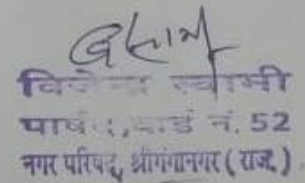 विजेन्द्र स्वामी
पार्षद, वार्ड नं. 52
नगर परिषद्, श्रीगंगानगर ( राज. )